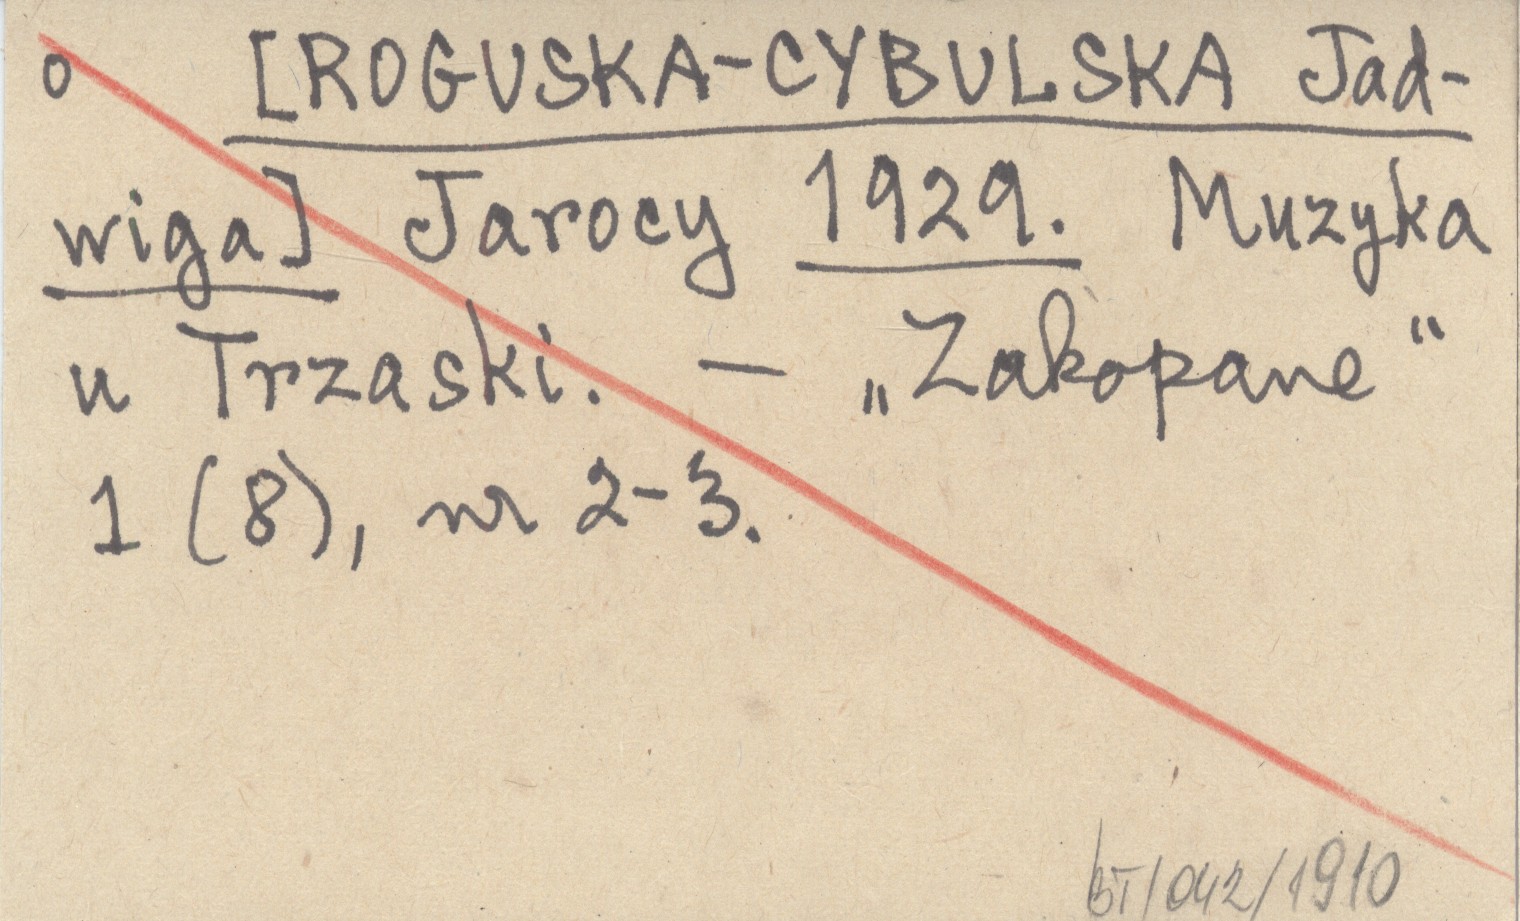 o [ROGUSKA-CYBULSKA Jad-
wiga] Jarocy 1929. Muzyka
u Trzaski. — „Zakopane“
1 (8), nr 2-3.
BT/042/1910